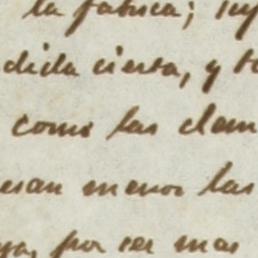 la fabrica; su
dida cierta, y t
como las dem
esan menos las
ya, por ser mas